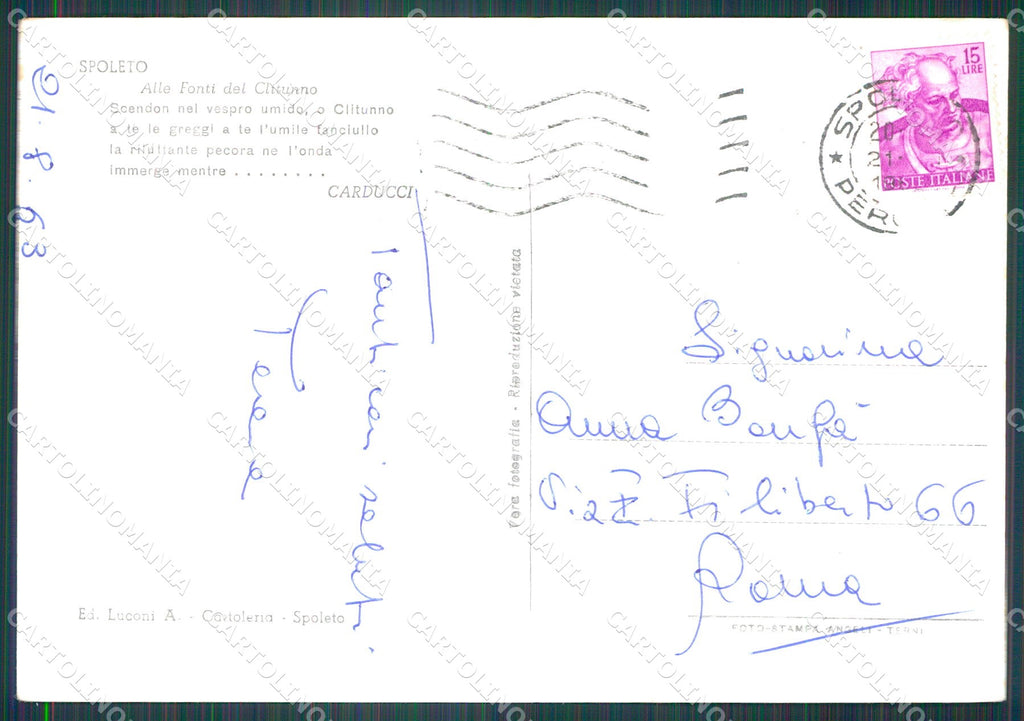 SPOLETO
Alle Fonti del Clitunno
Scendon nel vespro umido, o Clitunno
a te le greggi a te l'umile fanciullo
la riluttante pecora ne l'onda
immerge mentre . . . . . . . .
CARDUCCI
21. 8. 63
Tanti cari saluti.
Ed. Luconi A. - Cartoleria - Spoleto
Vera fotografia - Riproduzione vietata
15
LIRE
POSTE ITALIANE
SPOL
20
21
PER
Signorina
Anna
Via E. Filiberto 66
Roma
FOTO-STAMPA ANGELI - TERNI
CARTOLINOMANIA